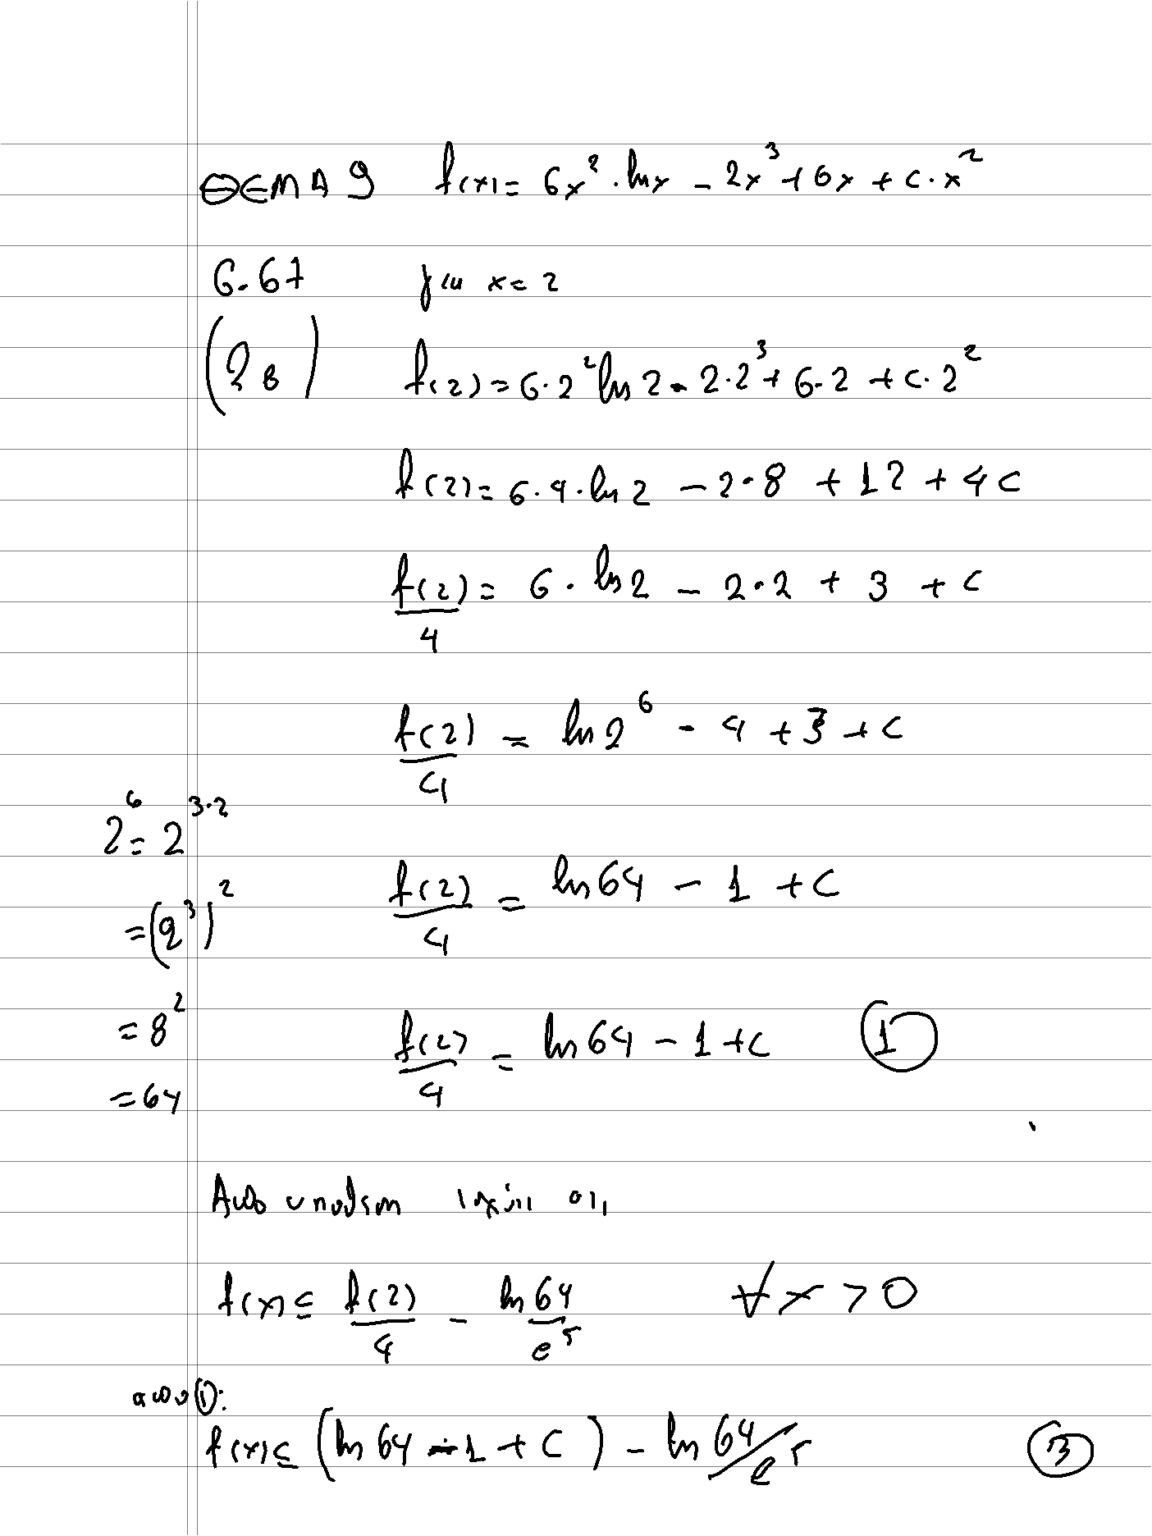 ΘΕΜΑ 9 f(x) = 6x² · lnx - 2x³ + 6x + c·x²
6.67 για x = 2
(2β) f(2) = 6·2² ln2 - 2·2³ + 6·2 + c·2²
f(2) = 6·4·ln2 - 2·8 + 12 + 4c
f(2)/4 = 6·ln2 - 2·2 + 3 + c
f(2)/4 = ln2⁶ - 4 + 3 + c
2⁶ = 2³·²
f(2)/4 = ln64 - 1 + c
= (2³)²
= 8² f(2)/4 = ln64 - 1 + c ①
= 64
Από υπόθεση ισχύει οτι
f(x) ≤ f(2)/4 - ln 64/e⁵ ∀x > 0
απο ①:
f(x) ≤ (ln64 - 1 + c) - ln 64/e⁵ ③